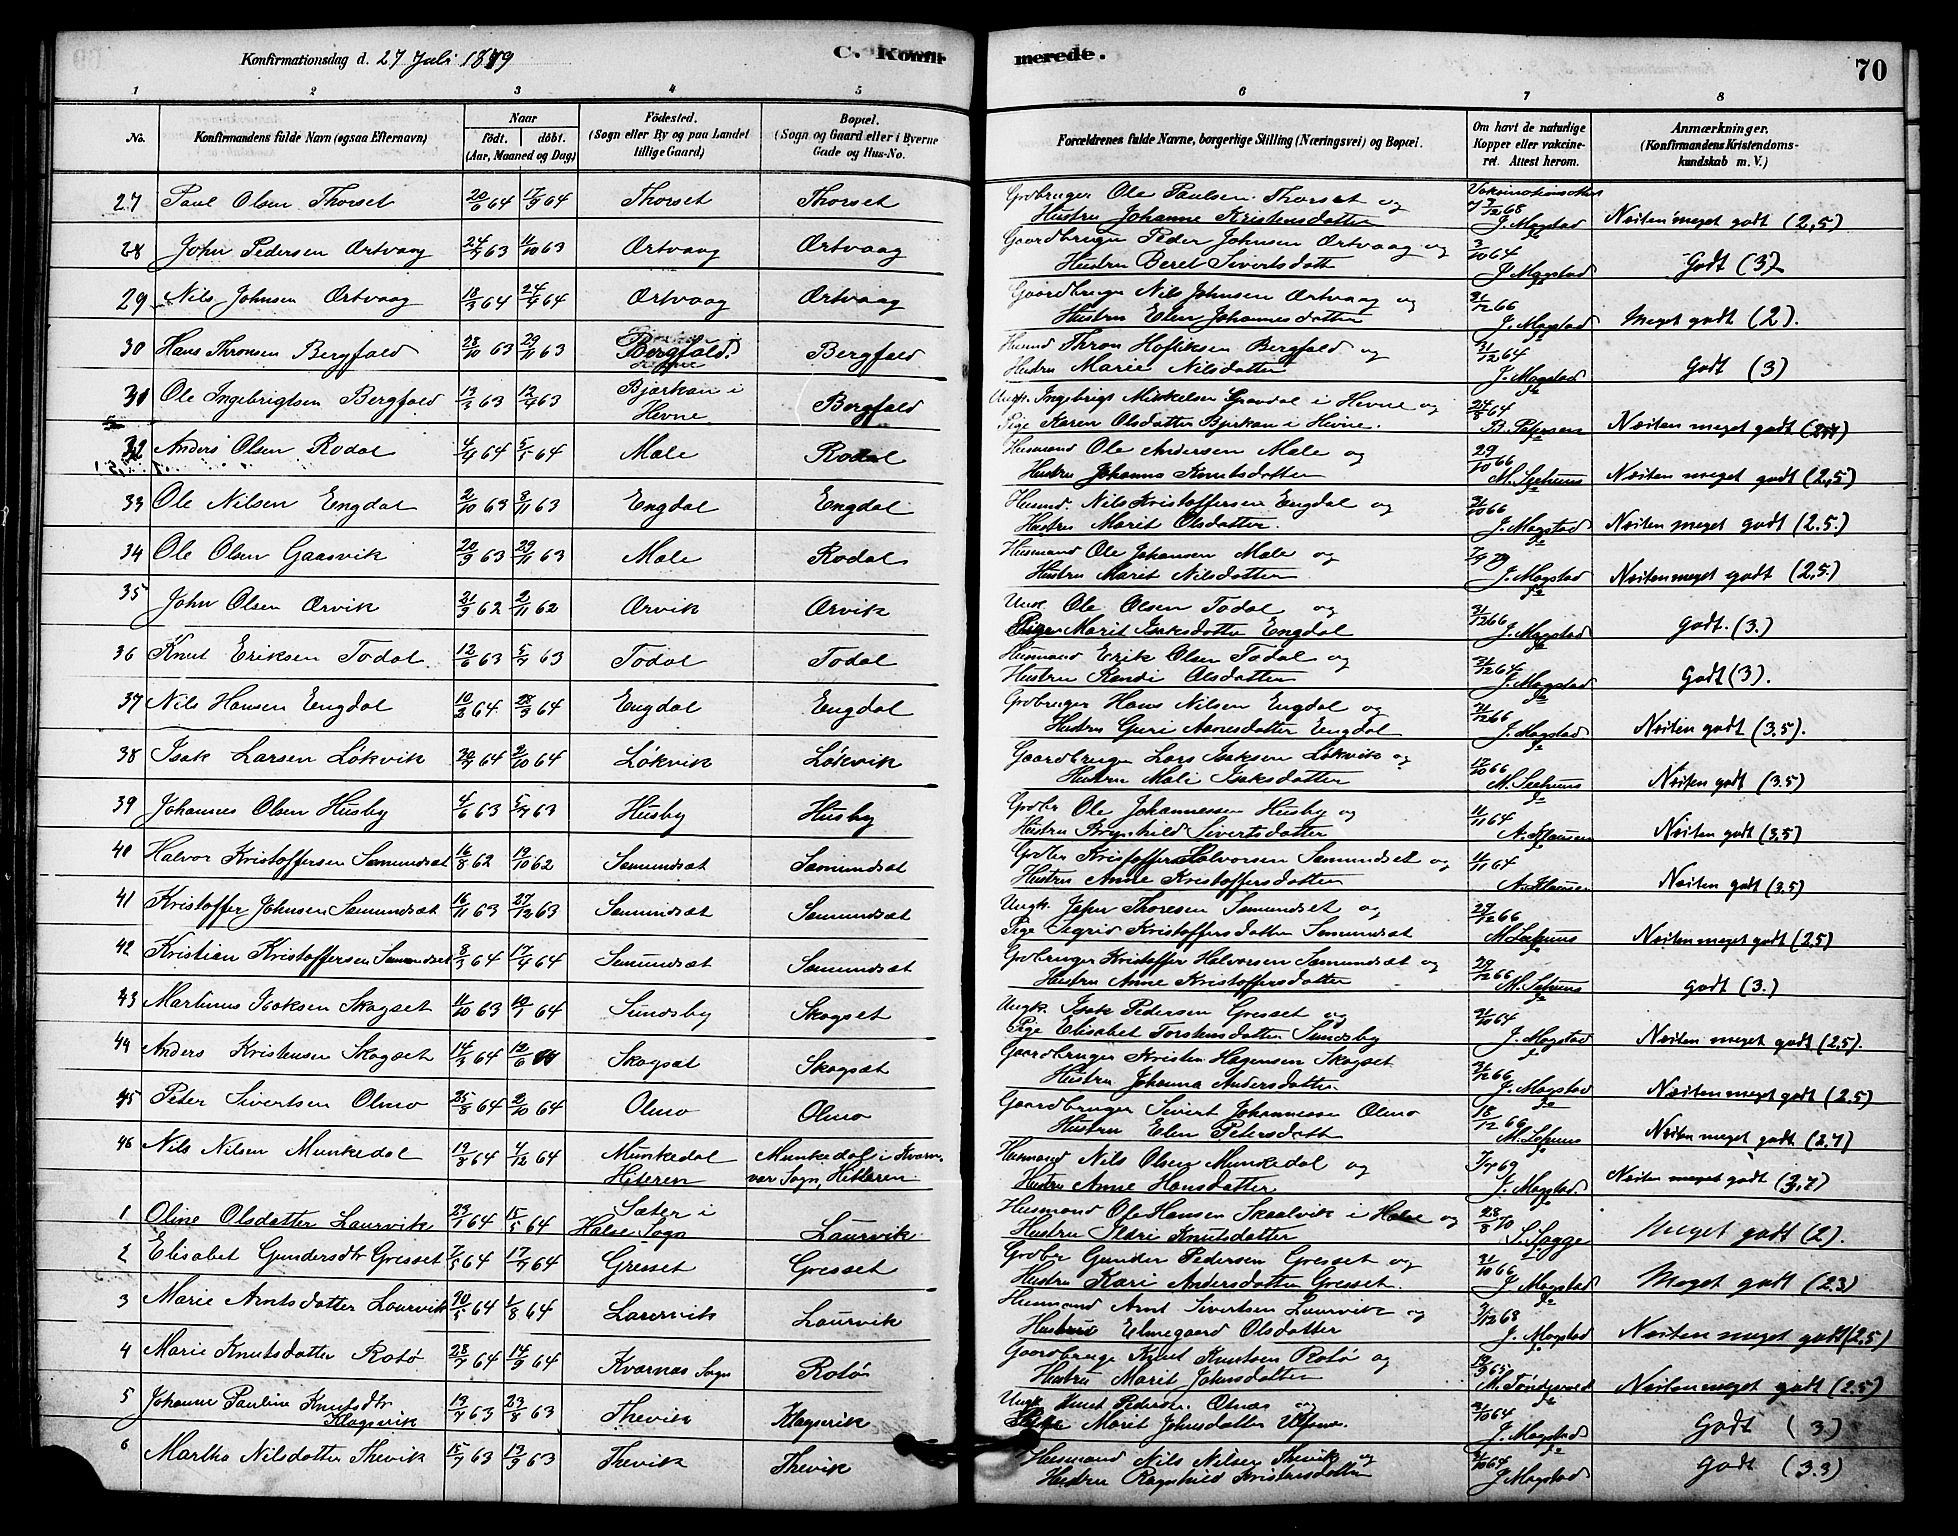 Konfirmationsdag d. 27 Juli 1879
C. Konfirmerede.
70
1 2 3 4 5 6 7 8
No. | Konfirmandens fulde Navn (ogsaa Efternavn) | Naar født. døbt. (Aar, Maaned og Dag) | Fødested. (Sogn eller By og paa Landet tillige Gaard) | Bopæl. (Sogn og Gaard eller i Byerne Gade og Hus-No. | Forældrenes fulde Navne, borgerlige Stilling (Næringsvei) og Bopæl. | Om havt de naturlige Kopper eller vakcineret. Attest herom. | Anmærkninger. (Konfirmandens Kristendomskundskab m. V.)
27 Paul Olsen Thorset 20/6 64 17/9 64 Thorset Thorset Grdbruger Ole Paulsen Thorset og
Hustru Johanne Kristensdatter J. Magstad Næsten meget godt (2,5)
28 John Pedersen Ørtvaag 24/7 63 11/10 63 Ørtvaag Ørtvaag Gaardbruger Peder Johnsen Ørtvaag og
Hustru Beret Sivertsdatt 3/10 64 J. Magstad Godt (3)
29 Nils Johnsen Ørtvaag 18/3 64 24/4 64 Ørtvaag Ørtvaag Gaardbruger Nils Johnsen Ørtvaag og
Hustru Elen Johannesdatter 31/12 66 J. Magstad Meget godt (2).
30 Hans Thronsen Bergfald 28/10 63 29/11 63 Bergfald Bergfald Husmd Thron Hofliksen Bergfald og
Hustru Marie Nilsdatter 31/12 64 J. Magstad Godt (3)
31 Ole Ingebrigtsen Bergfald 13/3 63 12/4 63 Bjørkan i Hevne Bergfald Ungk. Ingebrigt Mikkelsen i Hevne og
Pige Karen Olsdatter Bjørkan i Hevne. 24/8 64 B. Petersen Næsten meget godt
32 Anders Olsen Rodal 4/4 64 5/5 64 Male Rodal Husmand Ole Andersen Male og
Hustru Johanna Knutsdatter 29/10 66 Næsten meget godt (2,5)
33 Ole Nilsen Engdal 2/10 63 8/11 63 Engdal Engdal Husmd. Nils Kristoffersen Engdal og
Hustru Marit Olsdatter 31/10 66 J. Magstad Næsten meget godt (2.5.)
34 Ole Olsen Gaasvik 20/9 63 29/11 63 Male Rodal Husmand Ole Johansen Male og
Hustru Marit Nilsdatter J. Magstad Næsten meget godt (2,5.)
35 John Olsen Ørvik 21/9 62 2/11 62 Ørvik Ørvik Ungk. Ole Olsen Todal og
Pige Marit Isaksdatter Engdal 31/12 66 J. Magstad Godt. (3.)
36 Knut Eriksen Todal 12/6 63 5/7 63 Todal Todal Husmand Erik Olsen Todal og
Hustru Randi Olsdatter 31/12 64 J. Magstad Godt (3).
37 Nils Hansen Engdal 10/2 64 28/3 64 Engdal Engdal Grdbruger Hans Nilsen Engdal og
Hustru Guri Aanesdatter Engdal 31/12 66 J. Magstad Næsten godt (3,5).
38 Isak Larsen Løkvik 30/7 64 2/10 64 Løkvik Løkvik Gaardbruger Lars Isaksen Løkvik og
Hustru Mali Isaksdatter 17/10 66 Næsten godt (3.5)
39 Johannes Olsen Husby 4/6 63 5/7 63 Husby Husby Grdbr Ole Johannesen Husby og
Hustru Brynhild Sivertsdatter 11/11 64 A. Klausen Næsten godt (3,5)
40 Halvor Kristoffersen Sæmundsæt 16/8 62 19/10 62 Sæmundsæt Sæmundsæt Grdbr Kristoffer Halvorsen Sæmundset og
Hustru Anne Kristoffersdatter 11/11 64 A. Klausen Næsten godt (3.5)
41 Kristoffer Johnsen Sæmundsæt 16/11 63 27/12 63 Sæmundsæt Sæmundsæt Ungk. John Thoresen Sæmundset og
Pige Sigrid Kristoffersdatter Sæmundsæt 29/12 66 Næsten meget godt (2,5)
42 Kristian Kristoffersen Sæmundsæt 8/3 64 17/4 64 Sæmundsæt Sæmundsæt Grdbruger Kristoffer Halvorsen Sæmundsæt og
Hustru Anne Kristoffersdatter 29/12 66 Godt (3.)
43 Martinus Isaksen Skogset 11/10 63 64 Sundsby Skogset Ungk. Isak Pedersen Gresset og
Pige Elisabet Torstensdatter Sundsby 31/10 64 J. Magstad Næsten meget godt (2,5).
44 Anders Kristensen Skogset 14/3 64 12/6 64 Skogsæt Skogsæt Gaardbruger Kristen Hagensen Skogset
Hustru Johanna Andersdatter 31/12 66 J. Magstad Næsten meget godt (2.5)
45 Peter Sivertsen Olmo 25/8 64 2/10 64 Olmo Olmo Gaardbruger Sivert Johannesen Olmo
Hustru Elen Petersdatt 18/12 69 Næsten meget godt (2.7)
46 Nils Nilsen Munkedal 19/8 64 4/12 64 Munkedal Hiteren Munkedal i Kvarnvær Sogn, Hitteren. Husmand Nils Olsen Munkedal og
Hustru Anne Hansdatter J. Magstad. Næsten meget godt (2,7)
1 Oline Olsdatter Laurvik 23/1 64 15/5 64 Sæter i Halse Sogn Laurvik Husmand Ole Hansen Skaalvik i Halse og
Hustru Mari Knutsdatter 28/8 70 S. Sagge Meget godt (2).
2 Elisabet Gundersdtr Gresset 2/5 64 17/7 64 Gresset Gresset Grdbr Gunder Pedersen Gresset og
Hustru Kari Andersdatter Gresset. 31/10 66 J. Magstad Meget godt (2.3)
3 Marie Arntsdatter Laurvik 64 1/8 64 Laurvik Laurvik Husmand Arnt Sivertsen Laurvik og
Hustru Elmegaard Olsdatter 3/12 68 J. Magstad Næsten meget godt (2,5)
4 Marie Knutsdatter Rotø 28/7 64 14/9 64 Kvarnæs Sogn Rotø Gaardbruge Knut Knutsen Rotø og
Hustru Marit Johnsdatter 19/9 65 Næsten meget godt (2.5)
5 Johanne Pauline Knutsdtr Klagsvik 19/7 63 23/8 63 Thevik Klagsvik Ungk. Knut Pederse. Olnæs og
Pige Marit Johnsdatter 31/10 64 J. Magstad Godt (3)
6 Martha Nilsdatter Thevik 15/7 63 13/9 63 Thevik Thevik Husmand Nils Nilsen Thevik og
Hustru Ragnhild Kristensdatter 3/10 64 J. Magstad Godt (3.3)